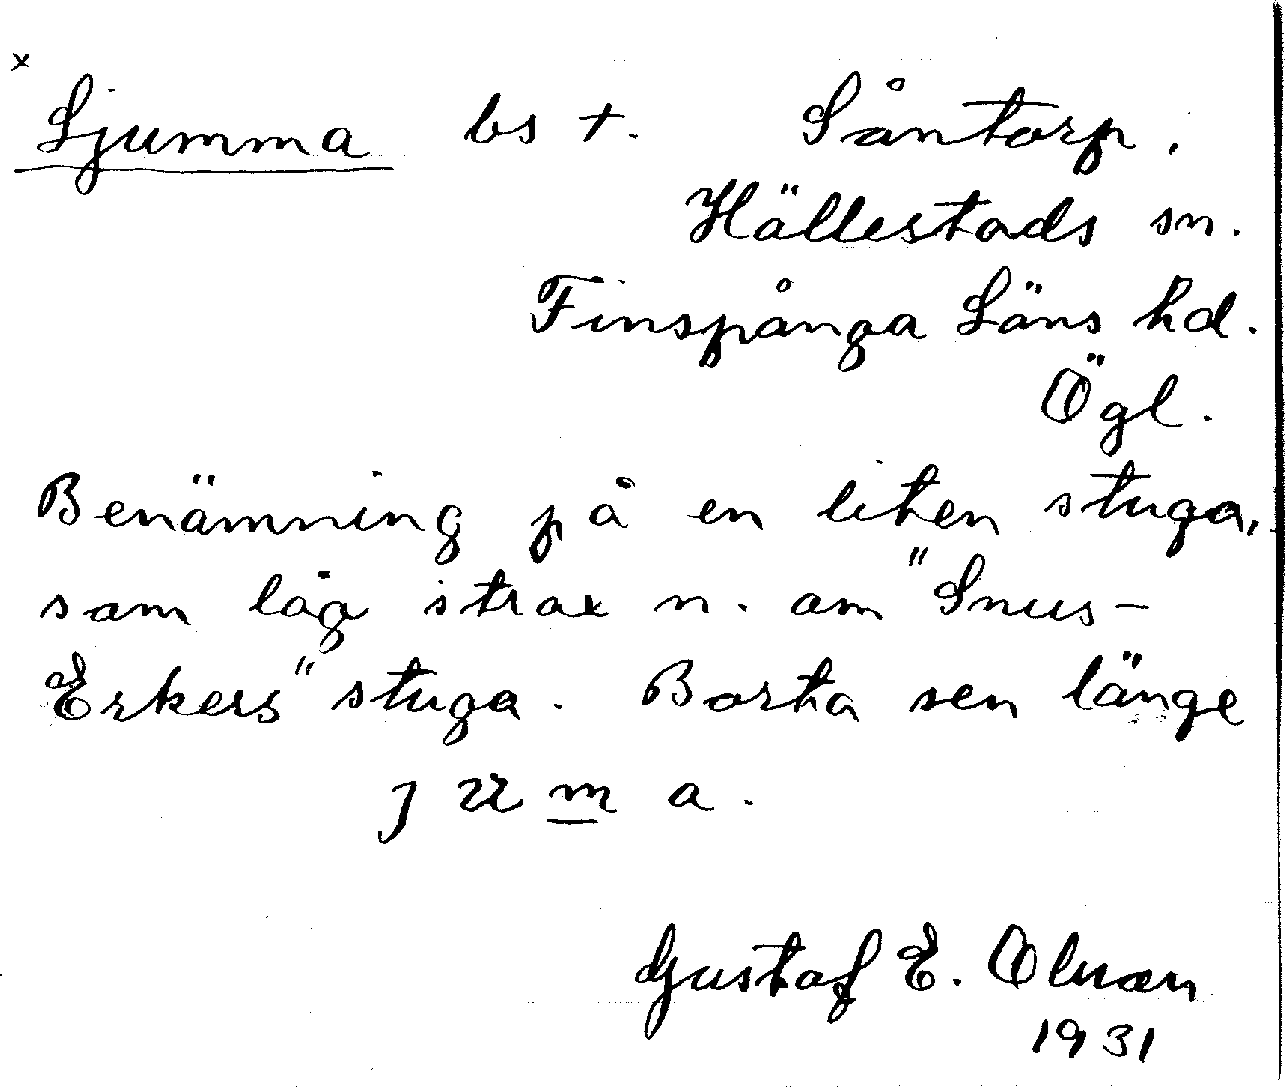 x
Ljumma bs +. Såntorp,
Hällestads sn.
Finspånga Läns hd.
Ögl.
Benämning på en liten stuga,
som låg strax n. om "Snus-
Erkers" stuga. Borta sen länge
Gustaf E.
1931